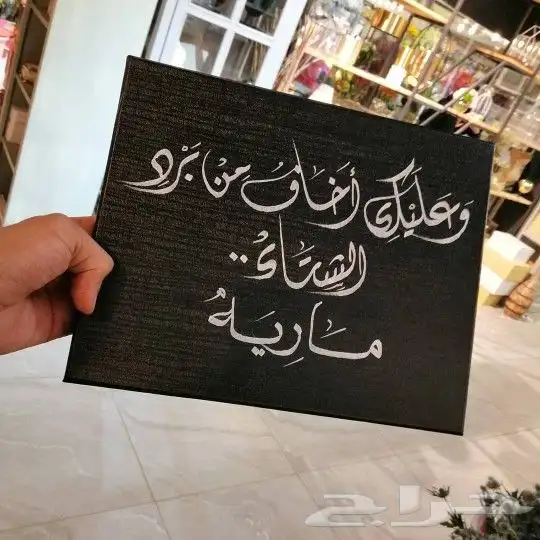 وَعَلَيْكِ أَخَافُ مِنْ بَرْدِ
الشِتَاءُ..
مَارِيهُ
حراج